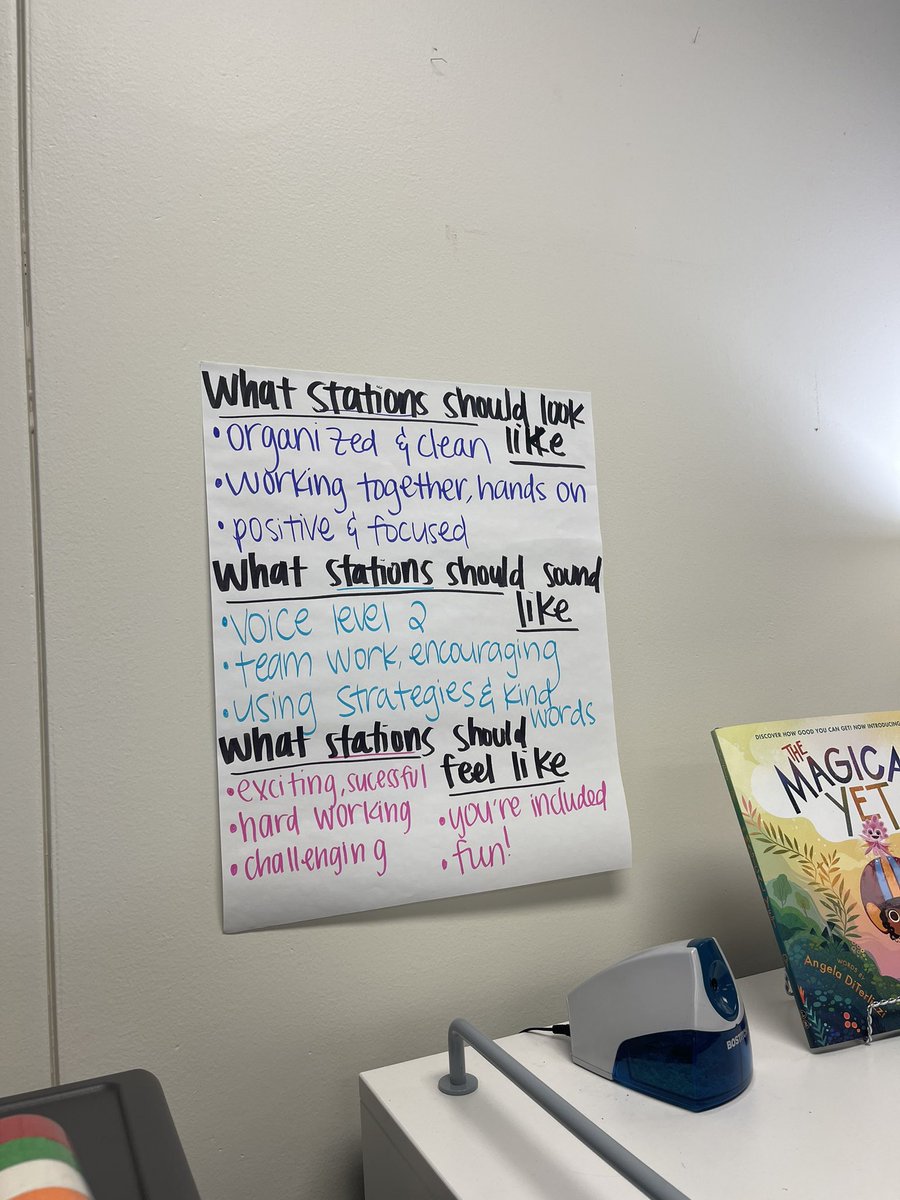 What stations should look
like
• organized & clean
• working together, hands on
• positive & focused
What stations should sound
like
• voice level 2
• team work, encouraging
• using strategies & kind
words
What stations should
feel like
• exciting, sucessful
• hard working
• challenging
• you're included
• fun!
DISCOVER HOW GOOD YOU CAN GET! NOW INTRODUCING
THE
MAGICA
YET
WORDS BY
Angela DiTerlizzi